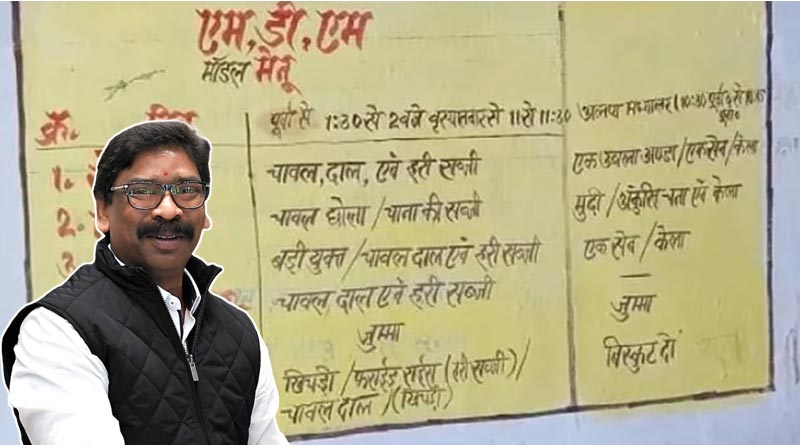 एम, डी, एम
मॉडल मेनू
क्रं.
पूर्वा से 1:30 से 2 बजे वृहस्पतवार से 11 से 11:30 अल्प मध्यान्तर (10:30 पूर्वा० से
1. चावल, दाल, एवं हरी सब्जी एक उबला अण्डा / एक सेव / केला
2. चावल छोला / चाना की सब्जी मुढ़ी / अंकुरित चना एवं केला
3 बड़ी युक्त / चावल दाल एवं हरी सब्जी एक सेव / केला
चावल, दाल एवं हरी सब्जी —
जुम्मा जुम्मा
खिचड़ी / फराईड राईस (हरी सब्जी) / बिस्कुट दो
चावल दाल / (खिचड़ी)